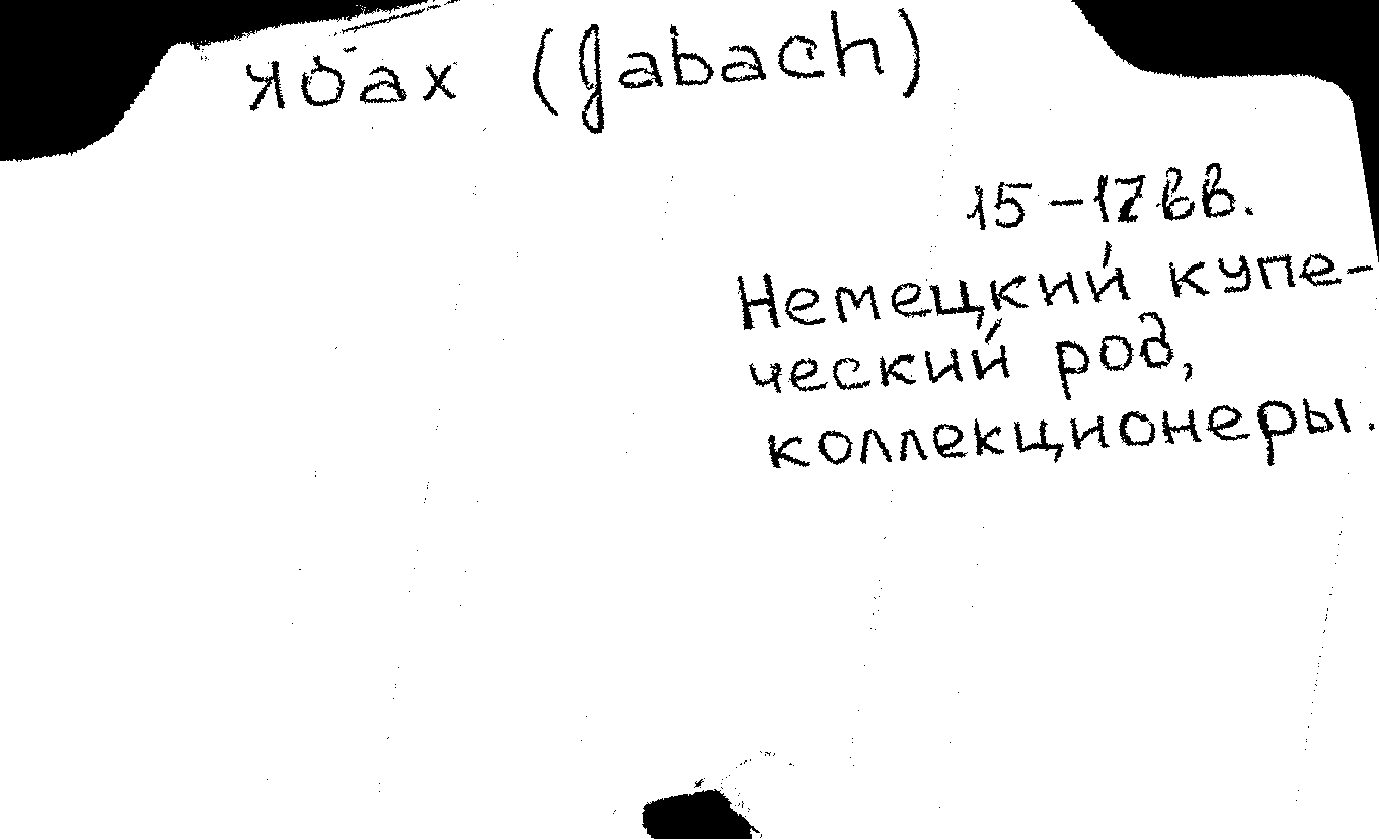 Ябах (Jabach)
15-17 вв.
Немецкий купе-
ческий род,
коллекционеры.